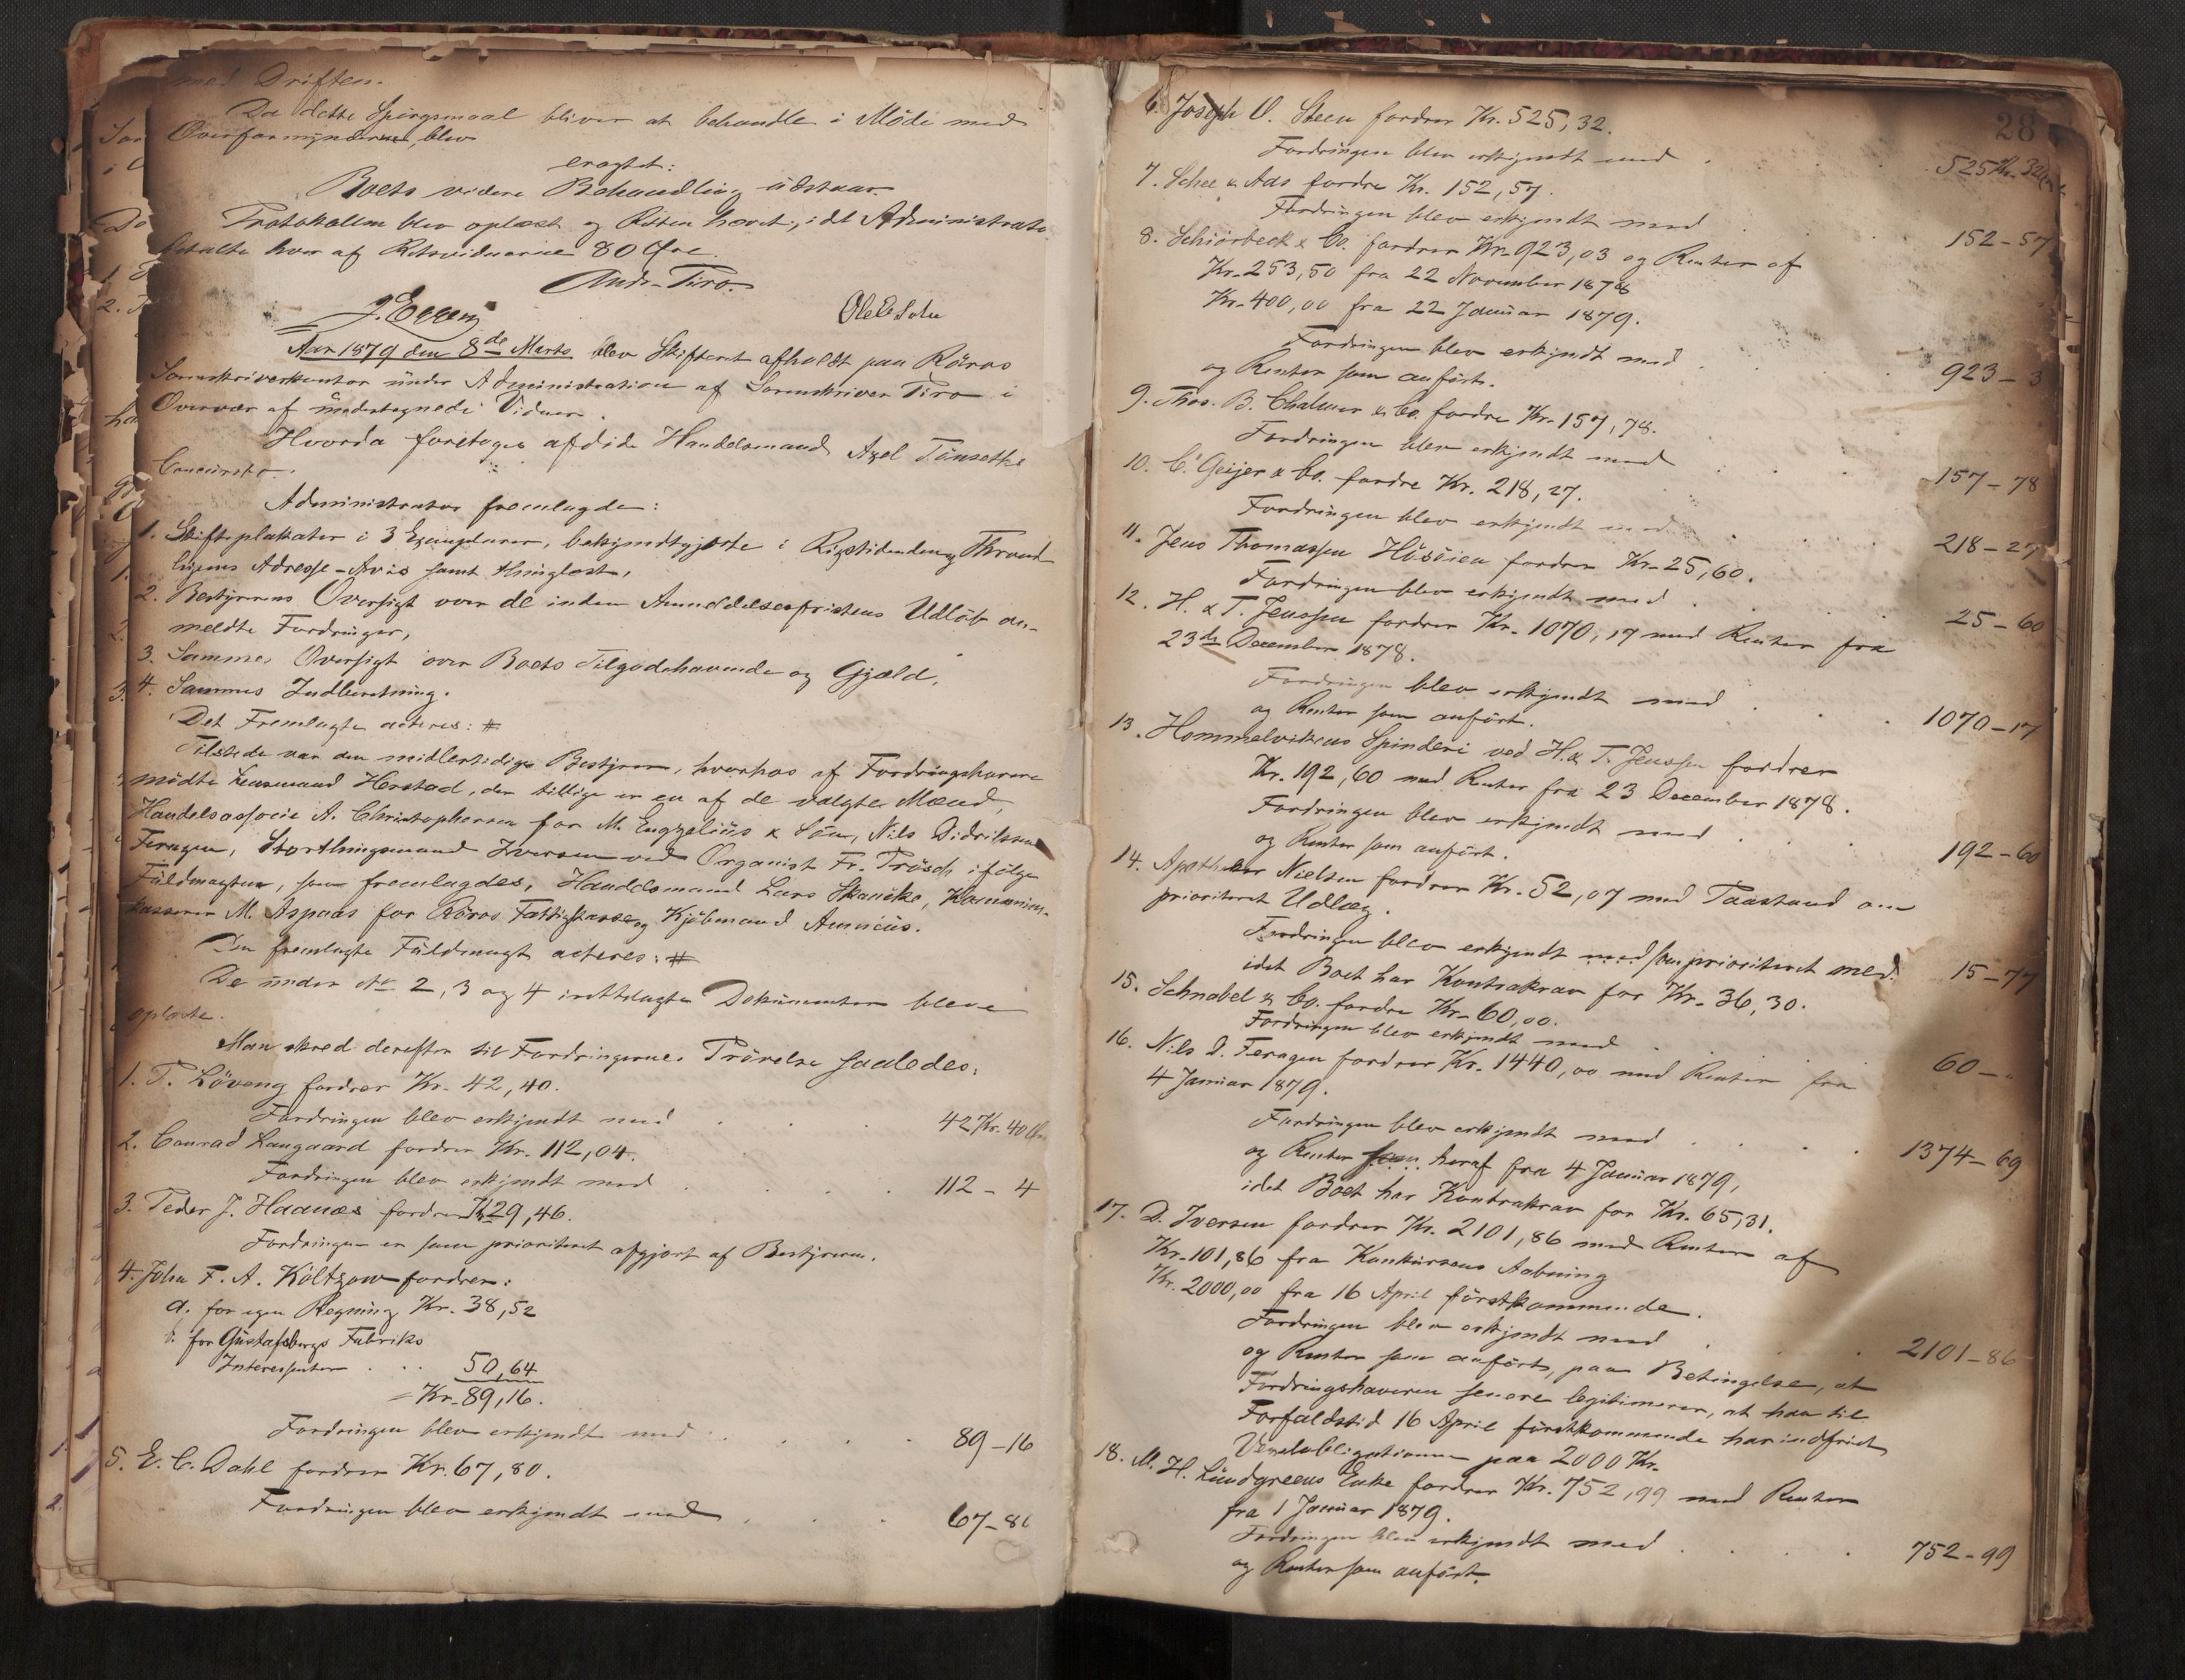 med Driften.
Da dette Spörgsmaal bliver at behandle i Möde med
Overformynderne, blev
eragtet:
Boets videre Behandling udstaar.
Protokollen blev oplæst og Retten hævet, idet Administrator
betalte hver af Retsvidnerne 80 Öre.
Andr. Tiro.
J. Eggen
Aar 1879 den 8de Marts blev Skifteret afholdt paa Röros
Sorenskriverkontor under Administration af Sorenskriver Tiro i
Overvær af undertegnede Vidner.
Hvorda foretoges afdöde Handelsmand Axel Tönseths
Concursbo.
Administrator fremlagde:
1. Skifteplakater i 3 Exemplarer, bekjendtgjorte i Rigstidenden og Thrond
hjems Adresse-Avis samt thinglæst,
2. Bestyrerens Oversigt over de inden Anmeldelsesfristens Udlöb an-
meldte Fordringer,
3. Sammes Oversigt over Boets Tilgodehavende og Gjæld,
4. Sammes Indberetning.
Det Fremlagte acteres: #
Tilstede var den midlertidige Bestyrer, hvorhos af Fordringshavere
mödte Lensmand Herstad, der tillige er en af de valgte Mænd,
Handelsassocie A. Christophersen for M. Engzelius & Sön, Nils Didriksen
Feragen, Storthingsmand Iversen ved Organist Fr. Prösch ifölge
Fuldmagten, som fremlagdes, Handelsmand Lars Skancke, Kommune-
kasserer M. Aspaas for Röros Fattigkasse og Kjöbmand Amneus.
Den fremlagte Fuldmagt acteres: #
De under No 2, 3 og 4 irettelagte Dokumenter bleve
oplæste.
Man skred derefter til Fordringernes Prövelse saaledes:
1. P. Löveng fordrer Kr. 42,40.
Fordringen blev erkjendt med . . . 42 Kr. 40 Öre
2. Conrad Langaard fordrer Kr. 112,04.
Fordringen blev erkjendt med . . . 112 - 4
3. Peder J. Haanæs fordrer Kr 29,46.
Fordringen er som prioriteret afgjort af Bestyreren.
4. John F. A. Költzow fordrer:
a. for egen Regning Kr. 38,52
b. for Gustafsbergs Fabriks
Interessenter . . . 50,64
= Kr. 89,16.
Fordringen blev erkjendt med . . . 89 - 16
5. E. C. Dahl fordrer Kr. 67,80.
Fordringen blev erkjendt med . . . 67 - 80
28
6. Joseph O. Steen fordrer Kr. 525,32.
Fordringen blev erkjendt med . 525 Kr. 32
7. Schee & Aas fordre Kr. 152,57.
Fordringen blev erkjendt med . 152 - 57
8. Schiörbeck & Co. fordrer Kr. 923,03 og Renter af
Kr. 253,50 fra 22 November 1878
Kr. 400,00 fra 22 Januar 1879.
Fordringen blev erkjendt med . . . 923 - 3
og Renter som anfört.
9. Thos. B. Chalmer & Co. fordre Kr. 157,78.
Fordringen blev erkjendt med . . . 157 - 78
10. C. Geijer & Co. fordre Kr. 218,27.
Fordringen blev erkjendt med . . . 218 - 27
11. Jens Thomassen Hösöien fordrer Kr. 25,60.
Fordringen blev erkjendt med . . . 25 - 60
12. H. & T. Jenssen fordrer Kr. 1070,17 med Renter fra
23de December 1878.
Fordringen blev erkjendt med . . . 1070 - 17
og Renter som anfört.
13. Hommelvikens Spinderi ved H. & T. Jenssen fordrer
Kr. 192,60 med Renter fra 23 December 1878.
Fordringen blev erkjendt med . . . 192 - 60
og Renter som anfört.
14. Apotheker Nielsen fordrer Kr. 52,07 med Paastand om
prioriteret Udlæg.
Fordringen blev erkjendt med som prioriteret med 15 - 77
idet Boet har Kontrakrav for Kr. 36,30.
15. Schnabel & Co. fordre Kr. 60,00.
Fordringen blev erkjendt med . . . 60 - "
16. Nils D. Feragen fordrer Kr. 1440,00 med Renter fra
4 Januar 1879.
Fordringen blev erkjendt med . . . 1374 - 69
og Renter som heraf fra 4 Januar 1879,
idet Boet har Kontrakrav for Kr. 65,31.
17. D. Iversen fordrer Kr. 2101,86 med Renter af
Kr. 101,86 fra Konkursens Aabning
Kr. 2000,00 fra 16 April förstkommende.
Fordringen blev erkjendt med . . . 2101 - 86
og Renter som anfört, paa Betingelse, at
Fordringshaveren senere legitimerer, at han til
Forfaldstid 16 April förstkommende har indfriet
Vexelobligationen paa 2000 Kr.
18. M. H. Lundgreens Enke fordrer Kr. 752,99 med Renter
fra 1 Januar 1879.
Fordringen blev erkjendt med . . . 752 - 99
og Renter som anfört.